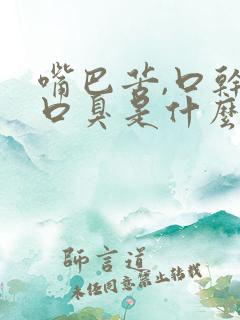 嘴巴苦,口幹
口臭是什麼
師言道
未经同意禁止转载